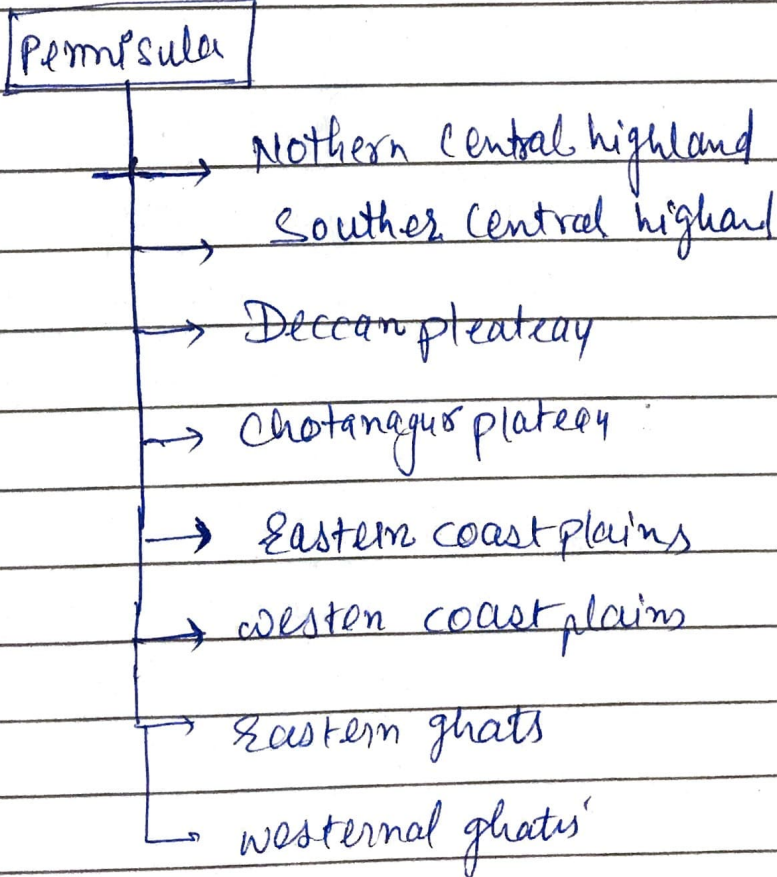 Pennisula
Nothern Central highland
Souther Central highand
Deccan pleateay
Chotanagur plateay
Eastern coast plains
westen coast plains
Eastern ghats
westernal ghats